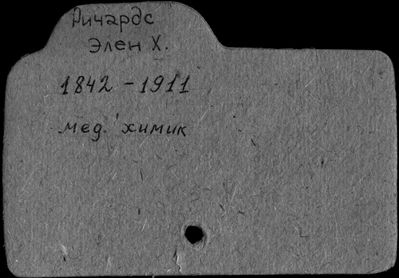 Ричардс
Элен Х.
1842-1911
мед. химик